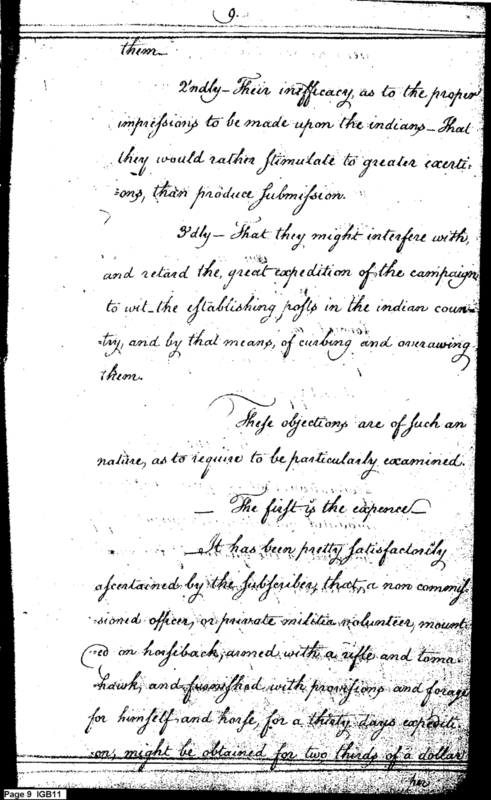 9.
them.
2'ndly - Their inefficacy, as to the proper
impressions to be made upon the indians - That
they would rather stimulate to greater exerti-
-ons, than produce submission.
3'dly - That they might interfere with,
and retard the great expedition of the campaign
to wit - the establishing posts in the indian coun-
-try, and by that means, of curbing and overawing
them.
These objections are of such an
nature, as to require to be particularly examined.
- The first is the expence -
- It has been pretty satisfactorily
ascertained by the subscriber, that, a non commis-
-sioned officer, or private militia volunteer, mount-
-ed on horseback, armed with a rifle and toma-
-hawk, and furnished with provisions and forage
for himself and horse, for a thirty days expediti-
-on, might be obtained for two thirds of a dollar
per
Page 9 IGB11